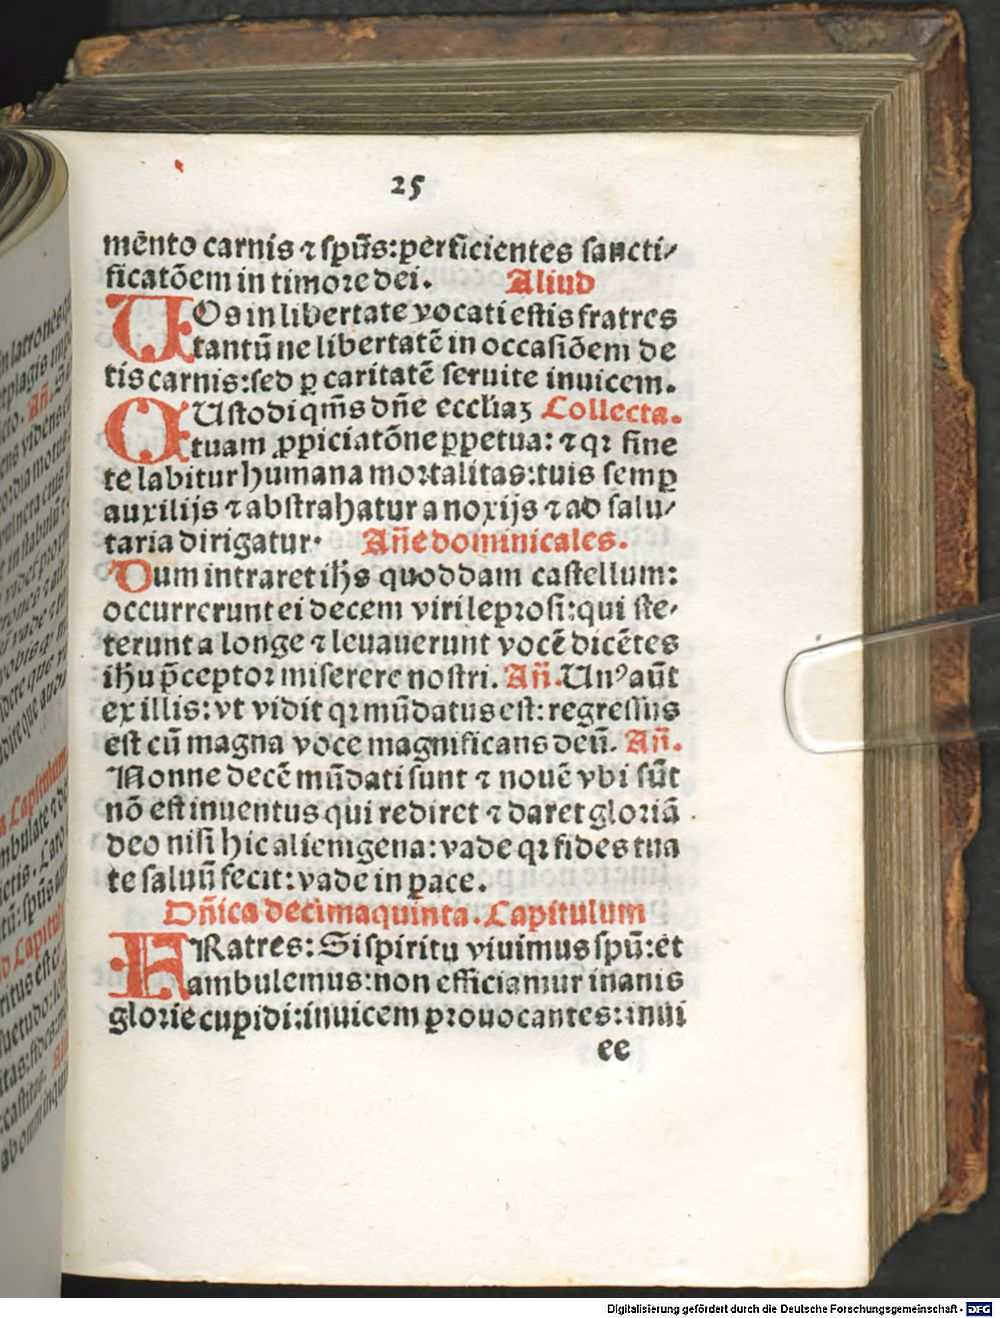 25
mēnto carnis ⁊ spūs: perficientes sancti⸗
ficatōem in timore dei. Aliud
VOs in libertate vocati estis fratres
tantū ne libertatē in occasiōem de
tis carnis: sed ꝑ caritatē seruite inuicem.
CUstodi qm̄s dn̄e eccl̄iaꝫ Collecta.
tuam ꝓpiciatōne ꝑpetua: ⁊ qꝛ sine
te labitur humana mortalitas: tuis semꝑ
auxilijs ⁊ abstrahatur a noxijs ⁊ ad salu⸗
taria dirigatur. Añe dominicales.
Dum intraret ih̄s quoddam castellum:
occurrerunt ei decem viri leprosi: qui ste⸗
terunt a longe ⁊ leuauerunt vocē dicētes
ih̄u p̄ceptor miserere nostri. Añ. Unꝰ aūt
ex illis: vt vidit qꝛ mūdatus est: regressus
est cū magna voce magnificans deū. Añ.
Nonne decē mūdati sunt ⁊ nouē vbi sūt
nō est inuentus qui rediret ⁊ daret gloriā
deo nisi hic alienigena: vade qꝛ fides tua
te saluū fecit: vade in pace.
Dñica decimaquinta. Capitulum
FRatres: Si spiritu viuimus spū: et
ambulemus: non efficiamur inanis
glorie cupidi: inuicem prouocantes: inui
ee
Digitalisierung gefördert durch die Deutsche Forschungsgemeinschaft - DFG